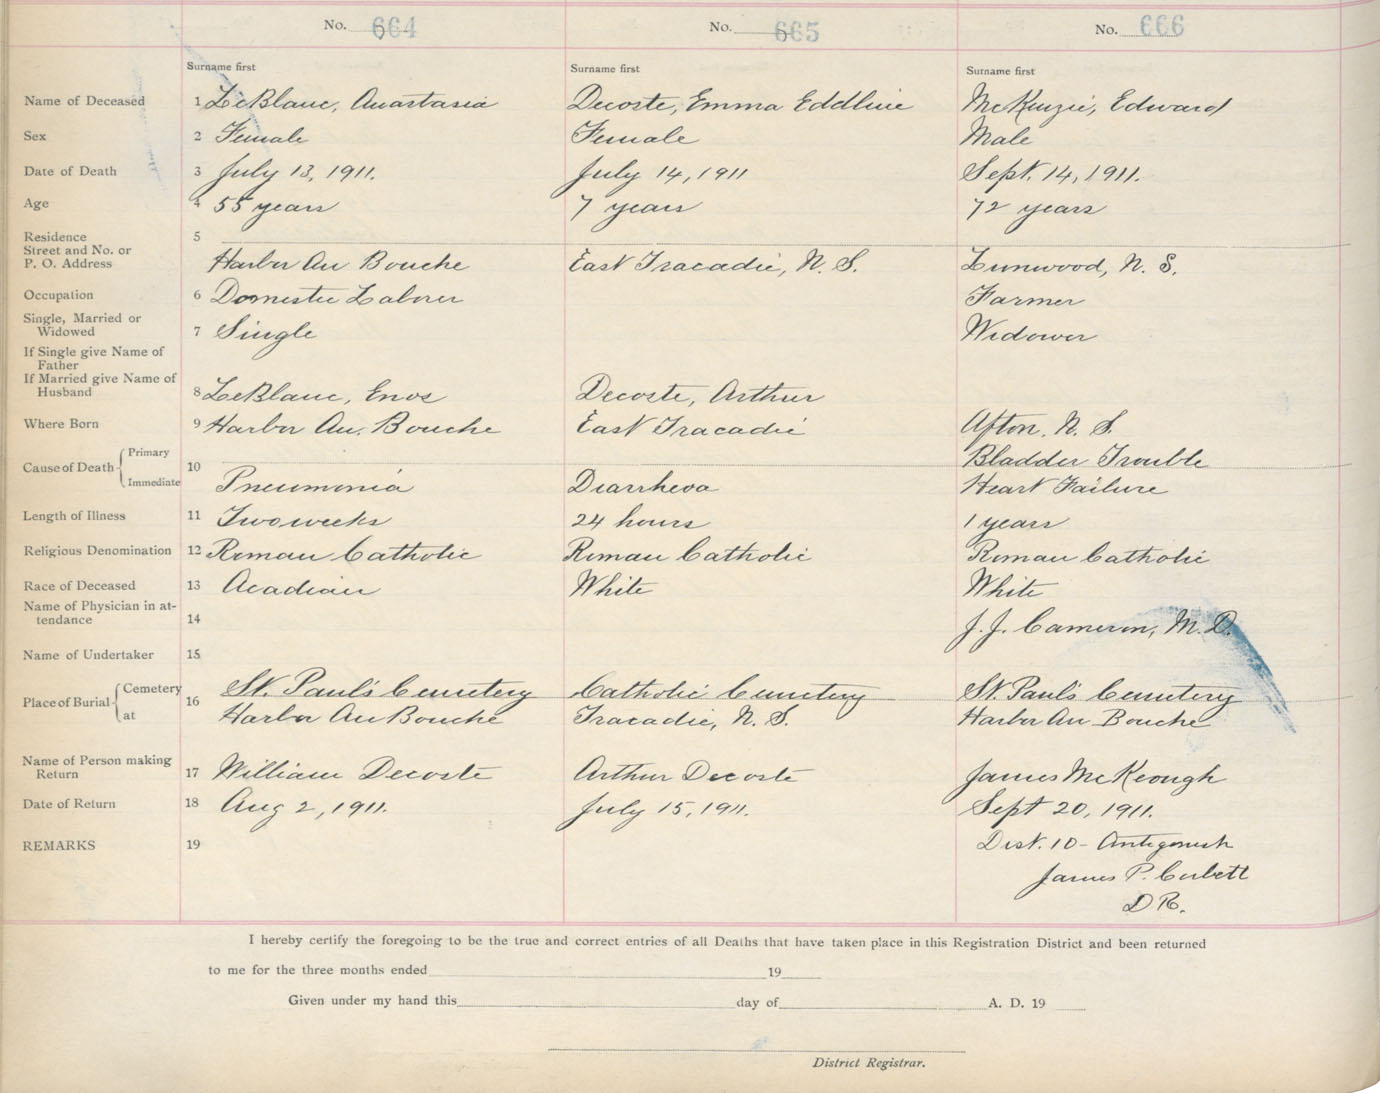 No. 664 No. 665 No. 666
Surname first Surname first Surname first
Name of Deceased 1 LeBlanc, Anastasia Decoste, Emma Eddline McKenzie, Edward
Sex 2 Female Female Male
Date of Death 3 July 13, 1911. July 14, 1911 Sept. 14, 1911.
Age 4 55 years 7 years 72 years
Residence 5
Street and No. or
P. O. Address Harbor Au Bouche East Tracadie, N. S. Linwood, N. S.
Occupation 6 Domestic Laborer Farmer
Single, Married or
Widowed 7 Single Widower
If Single give Name of
Father
If Married give Name of
Husband 8 LeBlanc, Enos Decoste, Arthur
Where Born 9 Harbor Au. Bouche East Tracadie Afton. N. S.
Cause of Death Primary 10 Bladder Trouble
Immediate Pneumonia Diarrheoa Heart Failure
Length of Illness 11 Two weeks 24 hours 1 years
Religious Denomination 12 Roman Catholic Roman Catholic Roman Catholic
Race of Deceased 13 Acadian White White
Name of Physician in at-
tendance 14 J. J. Cameron, M. D.
Name of Undertaker 15
Place of Burial Cemetery 16 St. Paul's Cemetery Catholic Cemetery St. Paul's Cemetery
at Harbor Au Bouche Tracadie, N. S. Harbor Au Bouche
Name of Person making
Return 17 William Decoste Arthur Decoste James McKeough
Date of Return 18 Aug 2, 1911. July 15, 1911. Sept 20, 1911.
REMARKS 19 Dist. 10 - Antigonish
James P. Corbett
D R.
I hereby certify the foregoing to be the true and correct entries of all Deaths that have taken place in this Registration District and been returned
to me for the three months ended 19
Given under my hand this day of A. D. 19
District Registrar.